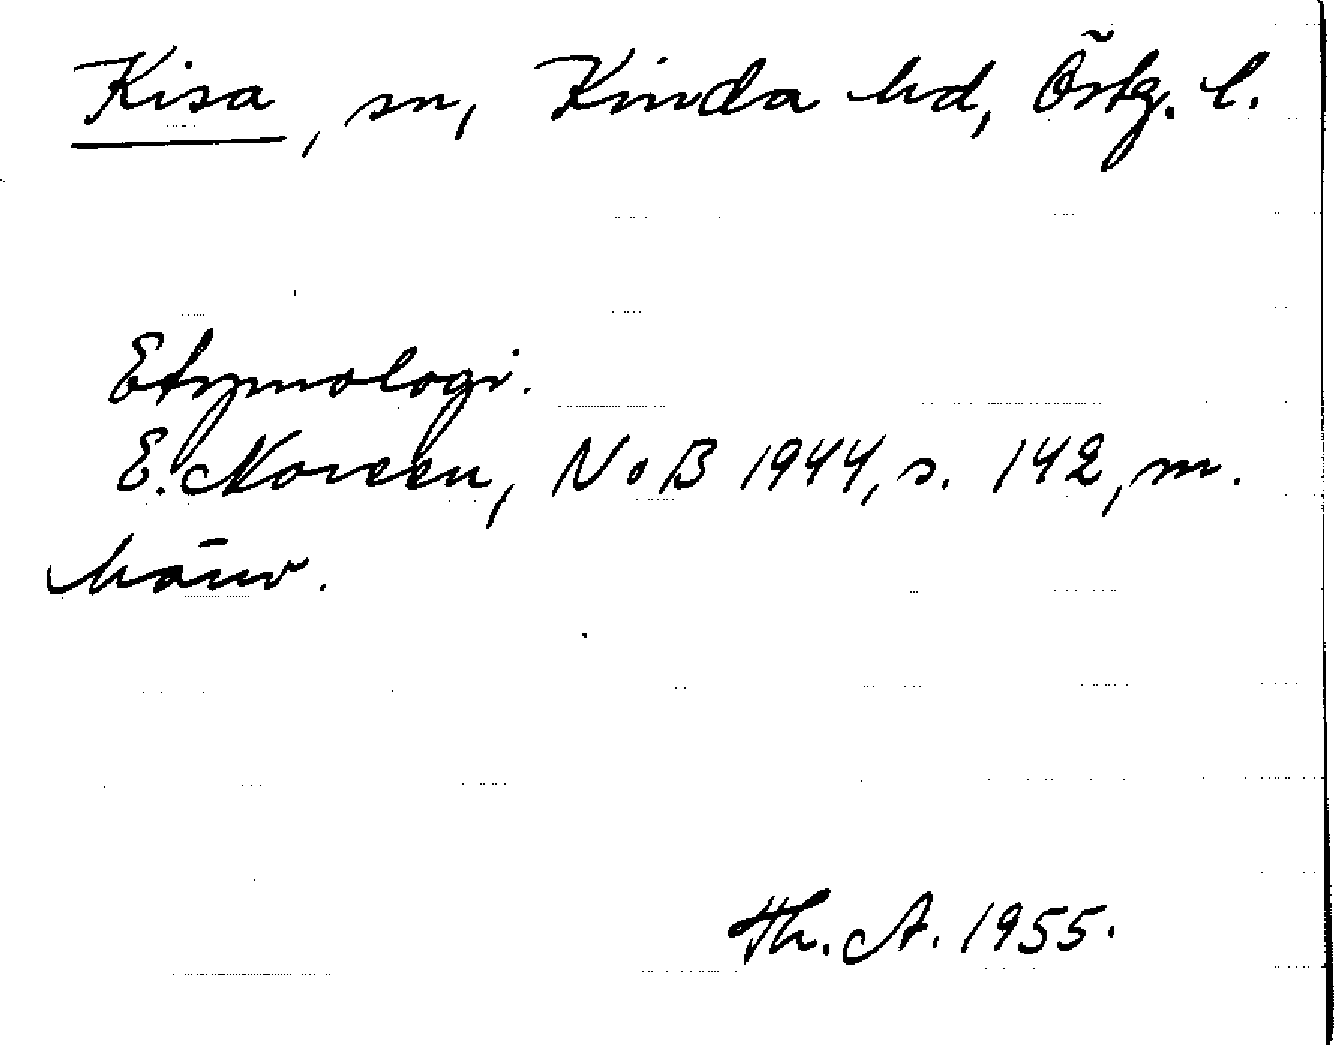 Kisa, sn, Kinda hd, Östg. l.
Etymologi.
E. Noreen, NoB 1944, s. 142, m.
hänv.
Th. A. 1955.